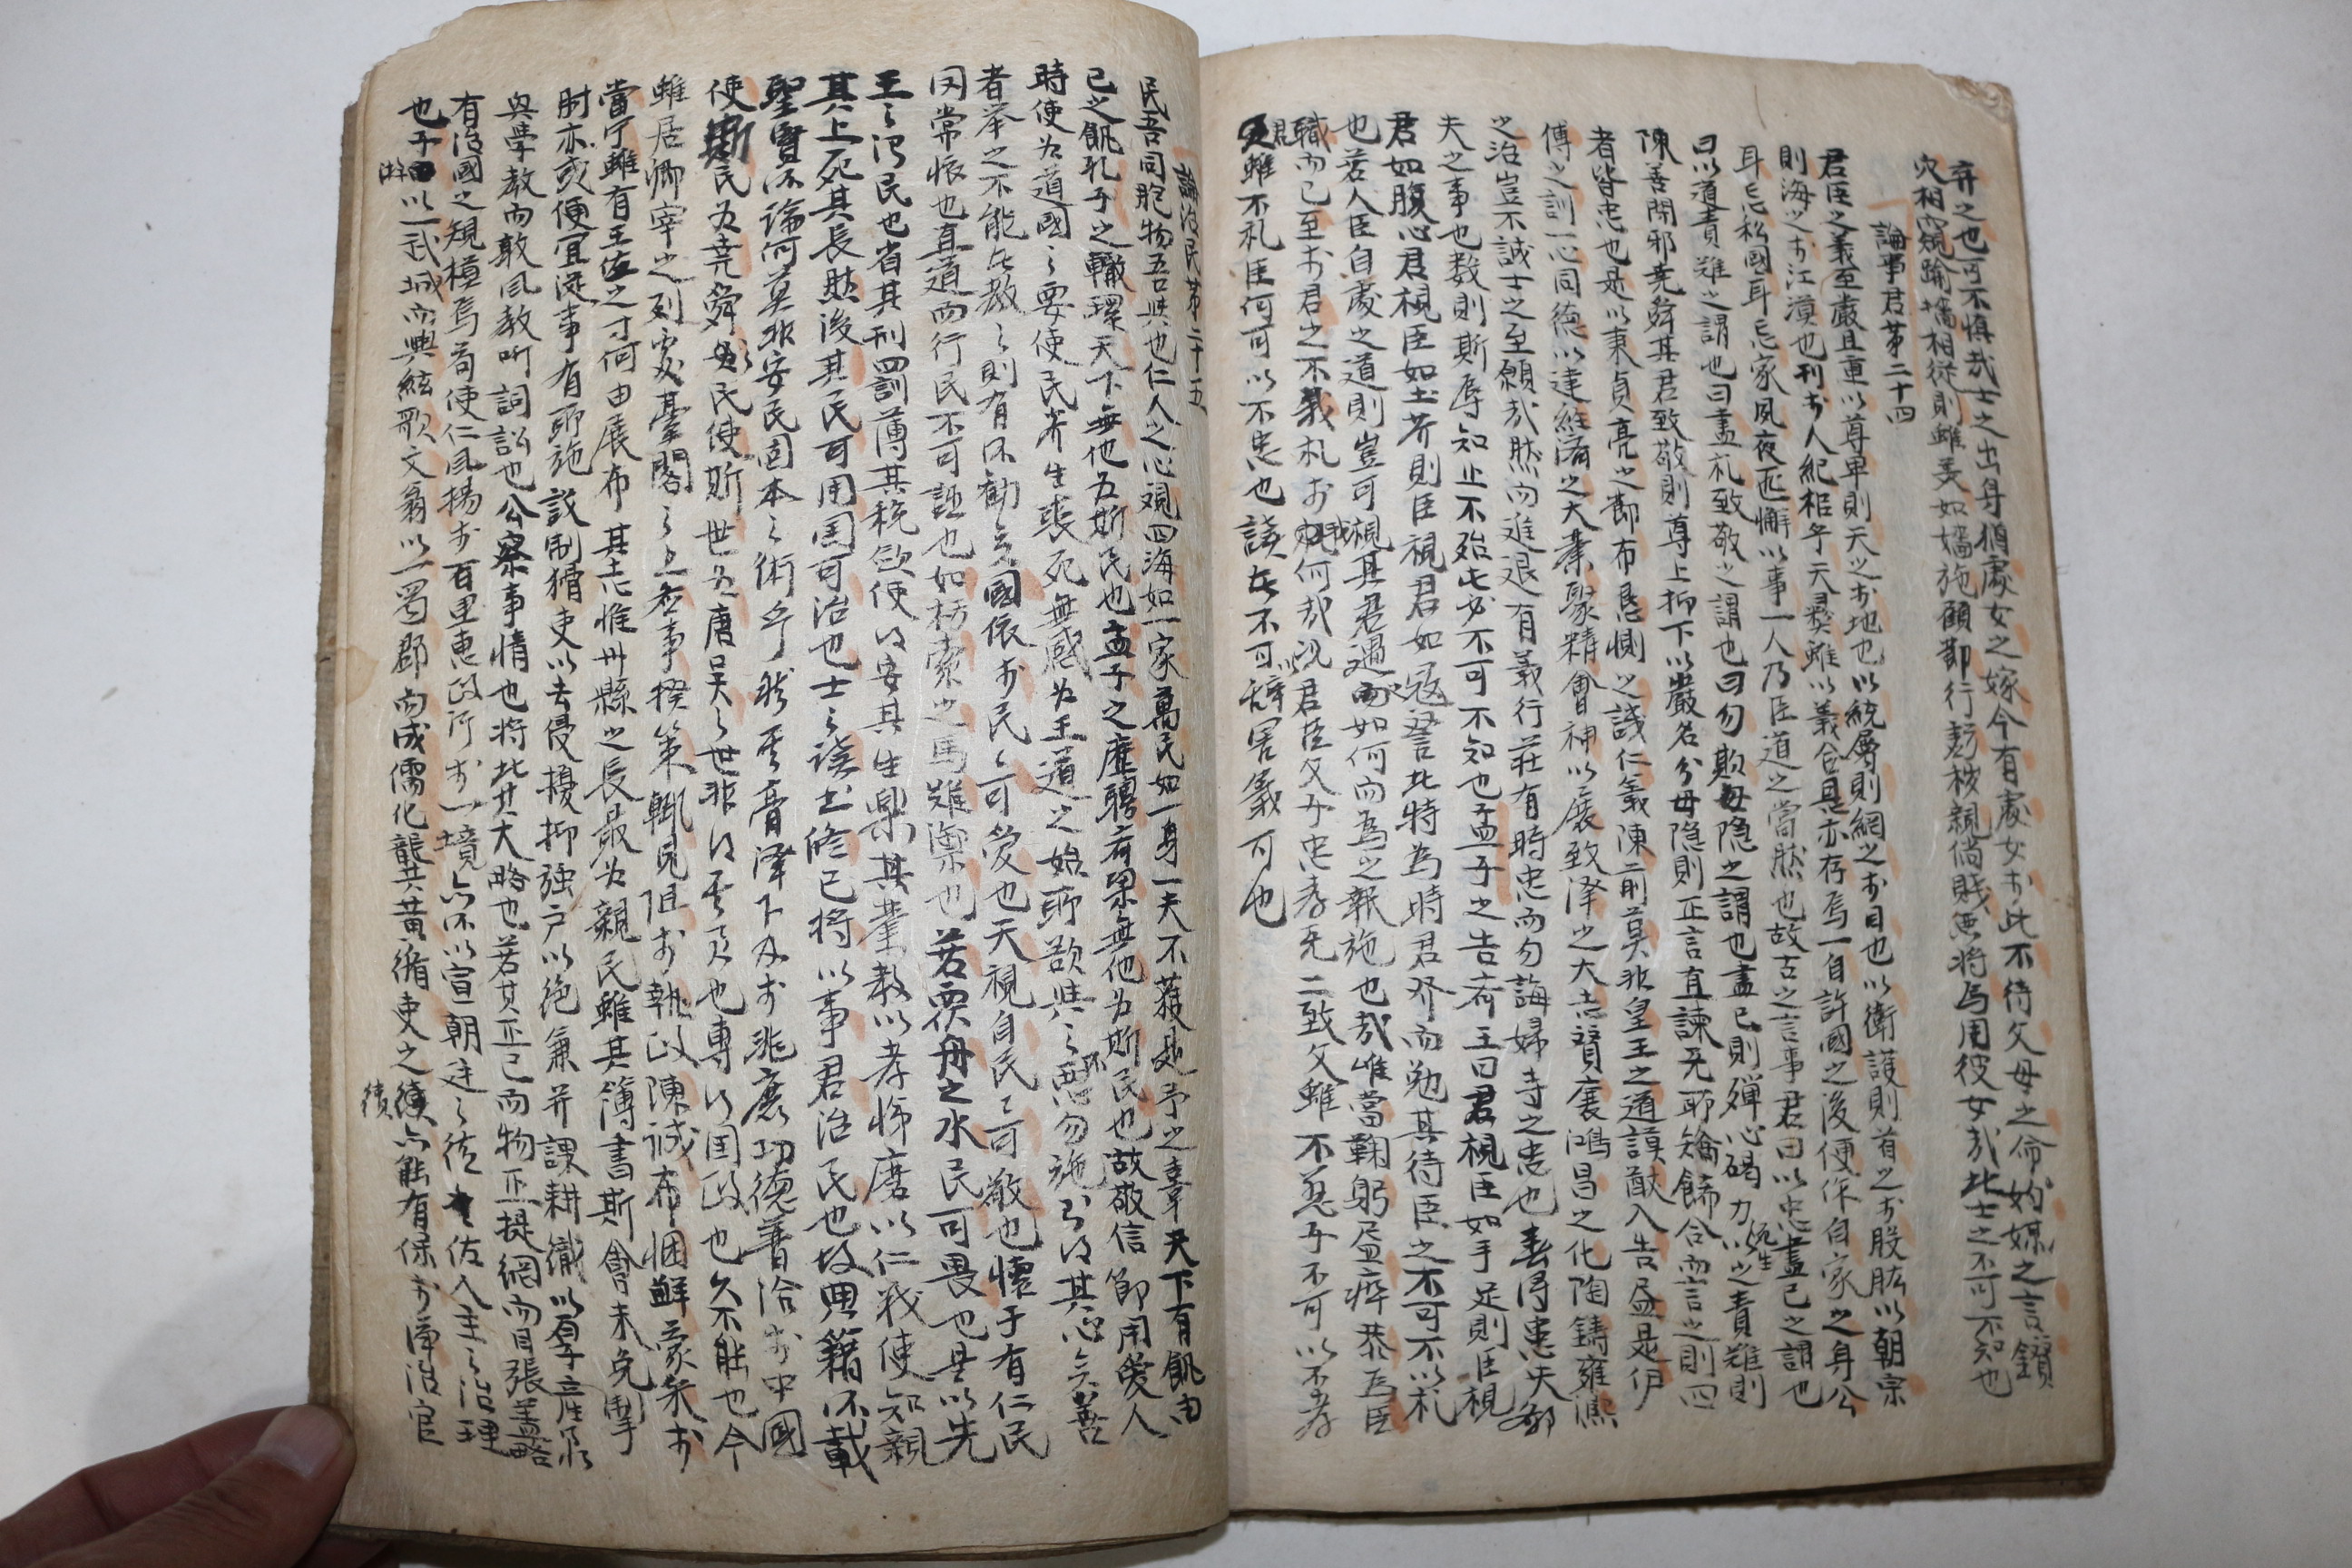 弃之也可不慎哉士之出身猶處女之嫁今有處女於此不待父母之命妁媒之言鑽
穴相窺踰墻相從則雖美如嬙施顧節行虧穢親尙賤惡將焉用彼女哉此士之不可不知也
論事君第二十四
君臣之義至嚴且重以尊卑則天之於地也以統屬則綱之於目也以衛護則首之於股肱以朝宗
則海之於江漢也列於人紀根乎天彛雖以義合具亦存焉一自許國之後便作自家之身公
耳忘私國耳忘家夙夜匪懈以事一人乃臣道之當然也故古之言事君曰以忠盡己之謂也
曰以道責難之謂也曰盡礼致敬之謂也曰勿欺毋隱之謂也盡己則殫心竭力以之責難則
陳善閉邪堯舜其君致敬則尊上抑下以嚴名分毋隱則正言直諫无所矯飾合而言之則四
者皆忠也是以秉貞亮之節布恳惻之誠仁義陳前莫非皇王之道謨猷入告盡是伊
傅之訓一心同德以達經濟之大業聚精會神以展致澤之大志贊襄鴻昌之化陶鑄雍熙
之治豈不誠士之至願哉然而進退有義行莊有時忠而勿誨婦寺之忠也患得患失鄙
夫之事也数則斯辱知止不殆屯必不可不知也孟子之告齊王曰君視臣如手足則臣視
君如腹心君視臣如土芥則臣視君如寇讐此特為時君發而勉其待臣之不可不以礼
也若人臣自處之道則豈可視其君遇我如何而為之報施也哉唯當鞠躬盡瘁恭爲臣
職而已至於君之不義礼於我何哉况君臣父子忠孝无二致父雖不慈子不可以不孝
君雖不礼臣何可以不忠也談者不可以辭害義可也
論治民第二十五
民吾同胞物吾與也仁人之心視四海如一家萬民如一身一夫不獲是予之辜天下有飢由
己之飢孔子之轍環天下無他為斯民也孟子之歷聘齊梁無他為斯民也故敬信節用愛人
時使为道國之要使民养生喪死無憾为王道之始所欲與之所惡勿施尔得其心矣善
者举之不能者教之則有不勸云國依於民民可愛也天視自民民可敬也懷于有仁民
罔常懷也直道而行民不可誣也如朽索之馬難御也若戾舟之水民可畏也是以先
王之治民也省其刑罰薄其稅斂便得安其生樂其業教以孝悌磨以仁義使知親
其上死其長然後其民可用国可治也士之讀书修己将以事君治民也故典籍所載
聖賢所論何莫非安民固本之術乎然其膏澤下及於兆庶功德普洽於中國
使斯民为堯舜之民使斯世为唐吴之世非得其位也專得国政也久不能也今
雖居卿宰之列處臺閣之上每事揆策輒見阻於執政陳誠布悃鲜蒙采於
當宁雖有王佐之才何由展布其志惟州縣之長最为親民雖其簿書斯會未免掣
肘亦或便宜從事有所施設制猾吏以去侵擾抑强戶以絶兼并課耕織以厚産業
與學教而敦風敎听詞訟也公察事情也将此其大略也若其正己而物正提綱而目張盖略
有治國之規模焉苟使仁风揚於百里惠政行於一境亦不以宣朝廷之德佐人主之治理
也子游以一武城而興絃歌文翁以一蜀郡而成儒化龔共黄循吏之績亦能有保於渖治官